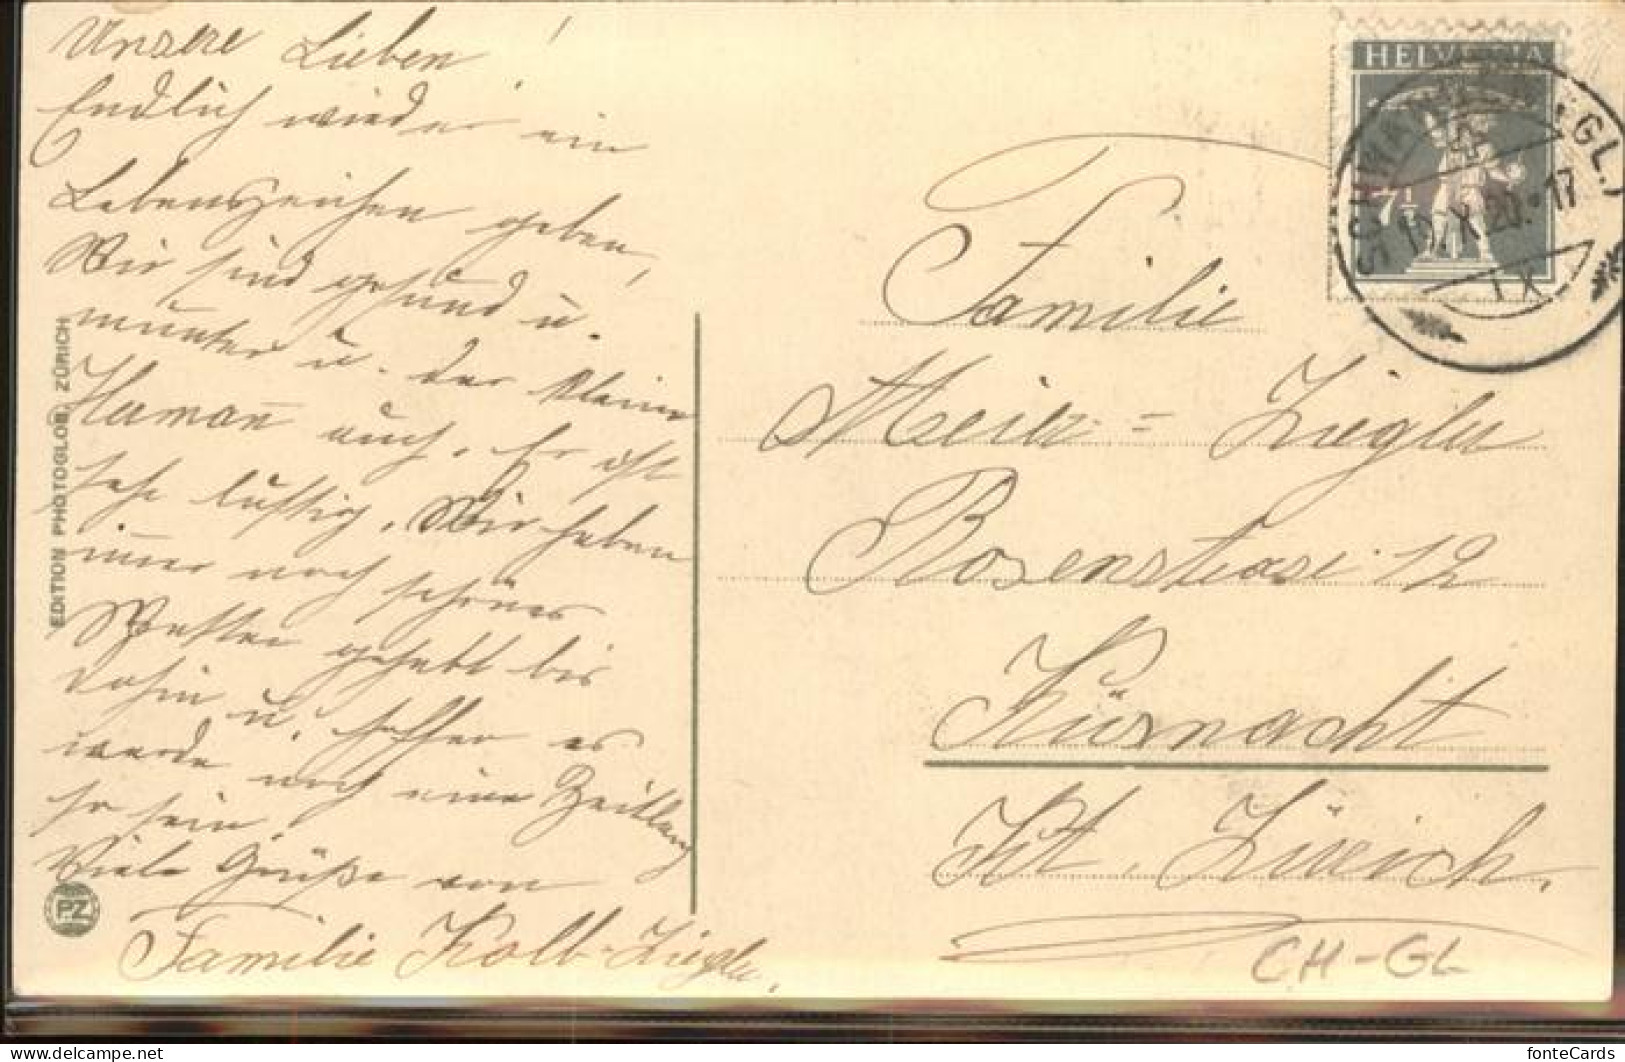 Unsere Lieben!
Endlich wieder ein
Lebenszeichen geben,
Wir sind gesund u.
munter u. der kleine
Herman̄ auch. Er ist
sehr lustig. Wir haben
im̄er noch schönes
Wetter gehabt bis
dahin u. hoffen es
werde noch eine Zeitlang
so sein.
Viele Grüße von
Familie Kolb-Ziegler.
EDITION PHOTOGLOB, ZÜRICH
PZ
HELVETIA
7½
SCHWANDEN (GL.)
10.X.20.-17
IX
Familie
Meier = Ziegler
Rosenstrasse 12
Küsnacht
Kt. Zürich.
CH-GL
http://www.delcampe.net
fonteCards